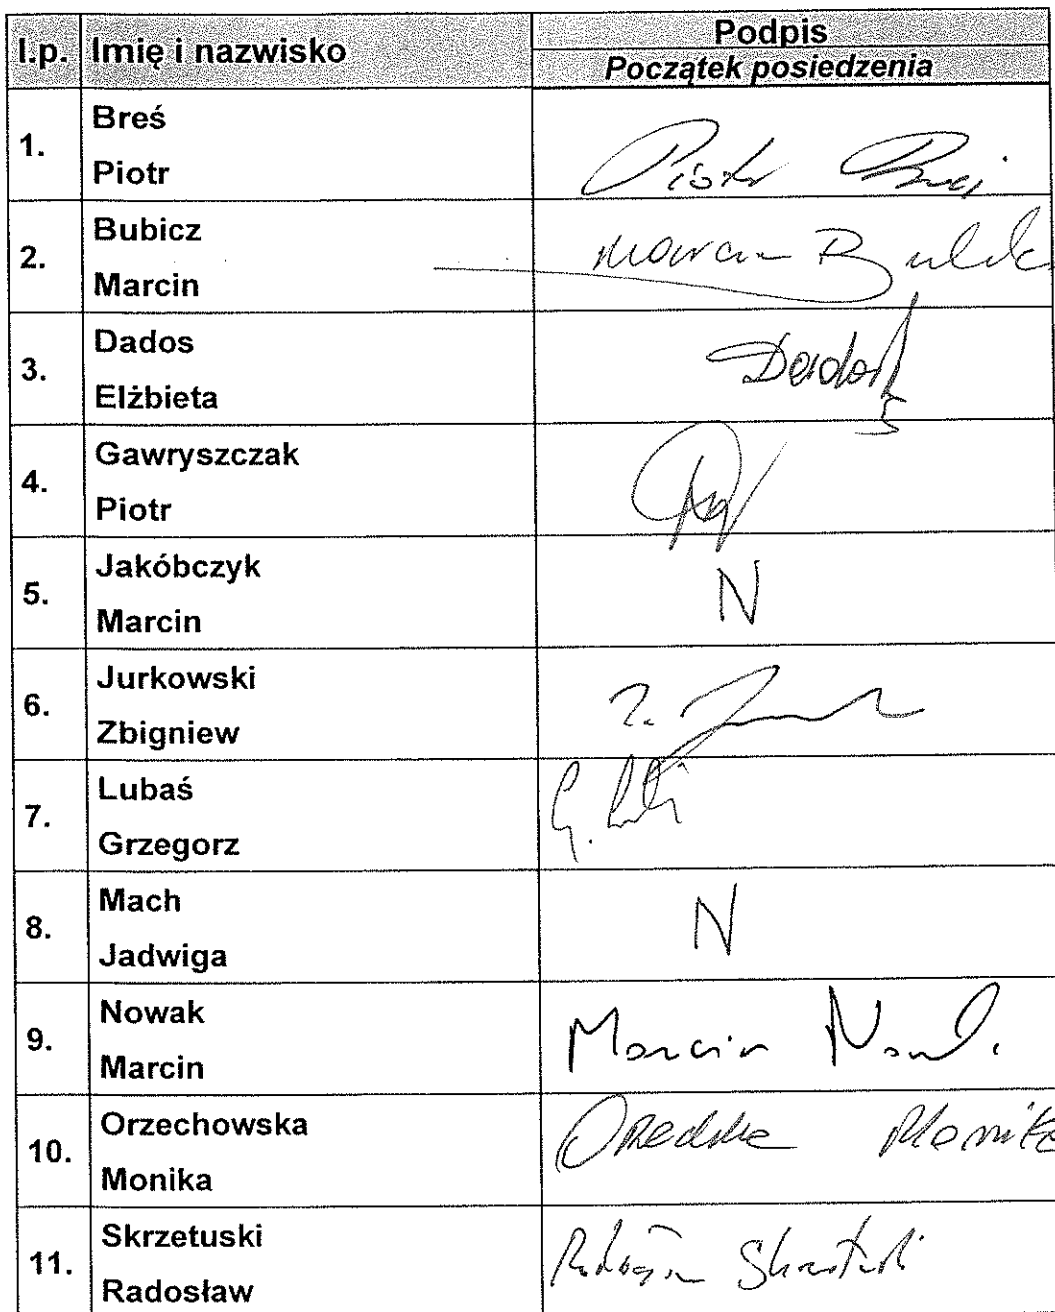 l.p. Imię i nazwisko Podpis
Początek posiedzenia
1. Breś
Piotr
Piotr Breś
2. Bubicz
Marcin
Marcin
3. Dados
Elżbieta
Dados
4. Gawryszczak
Piotr
5. Jakóbczyk
Marcin
N
6. Jurkowski
Zbigniew
Z.
7. Lubaś
Grzegorz
G.
8. Mach
Jadwiga
N
9. Nowak
Marcin
Marcin
10. Orzechowska
Monika
Monika
11. Skrzetuski
Radosław